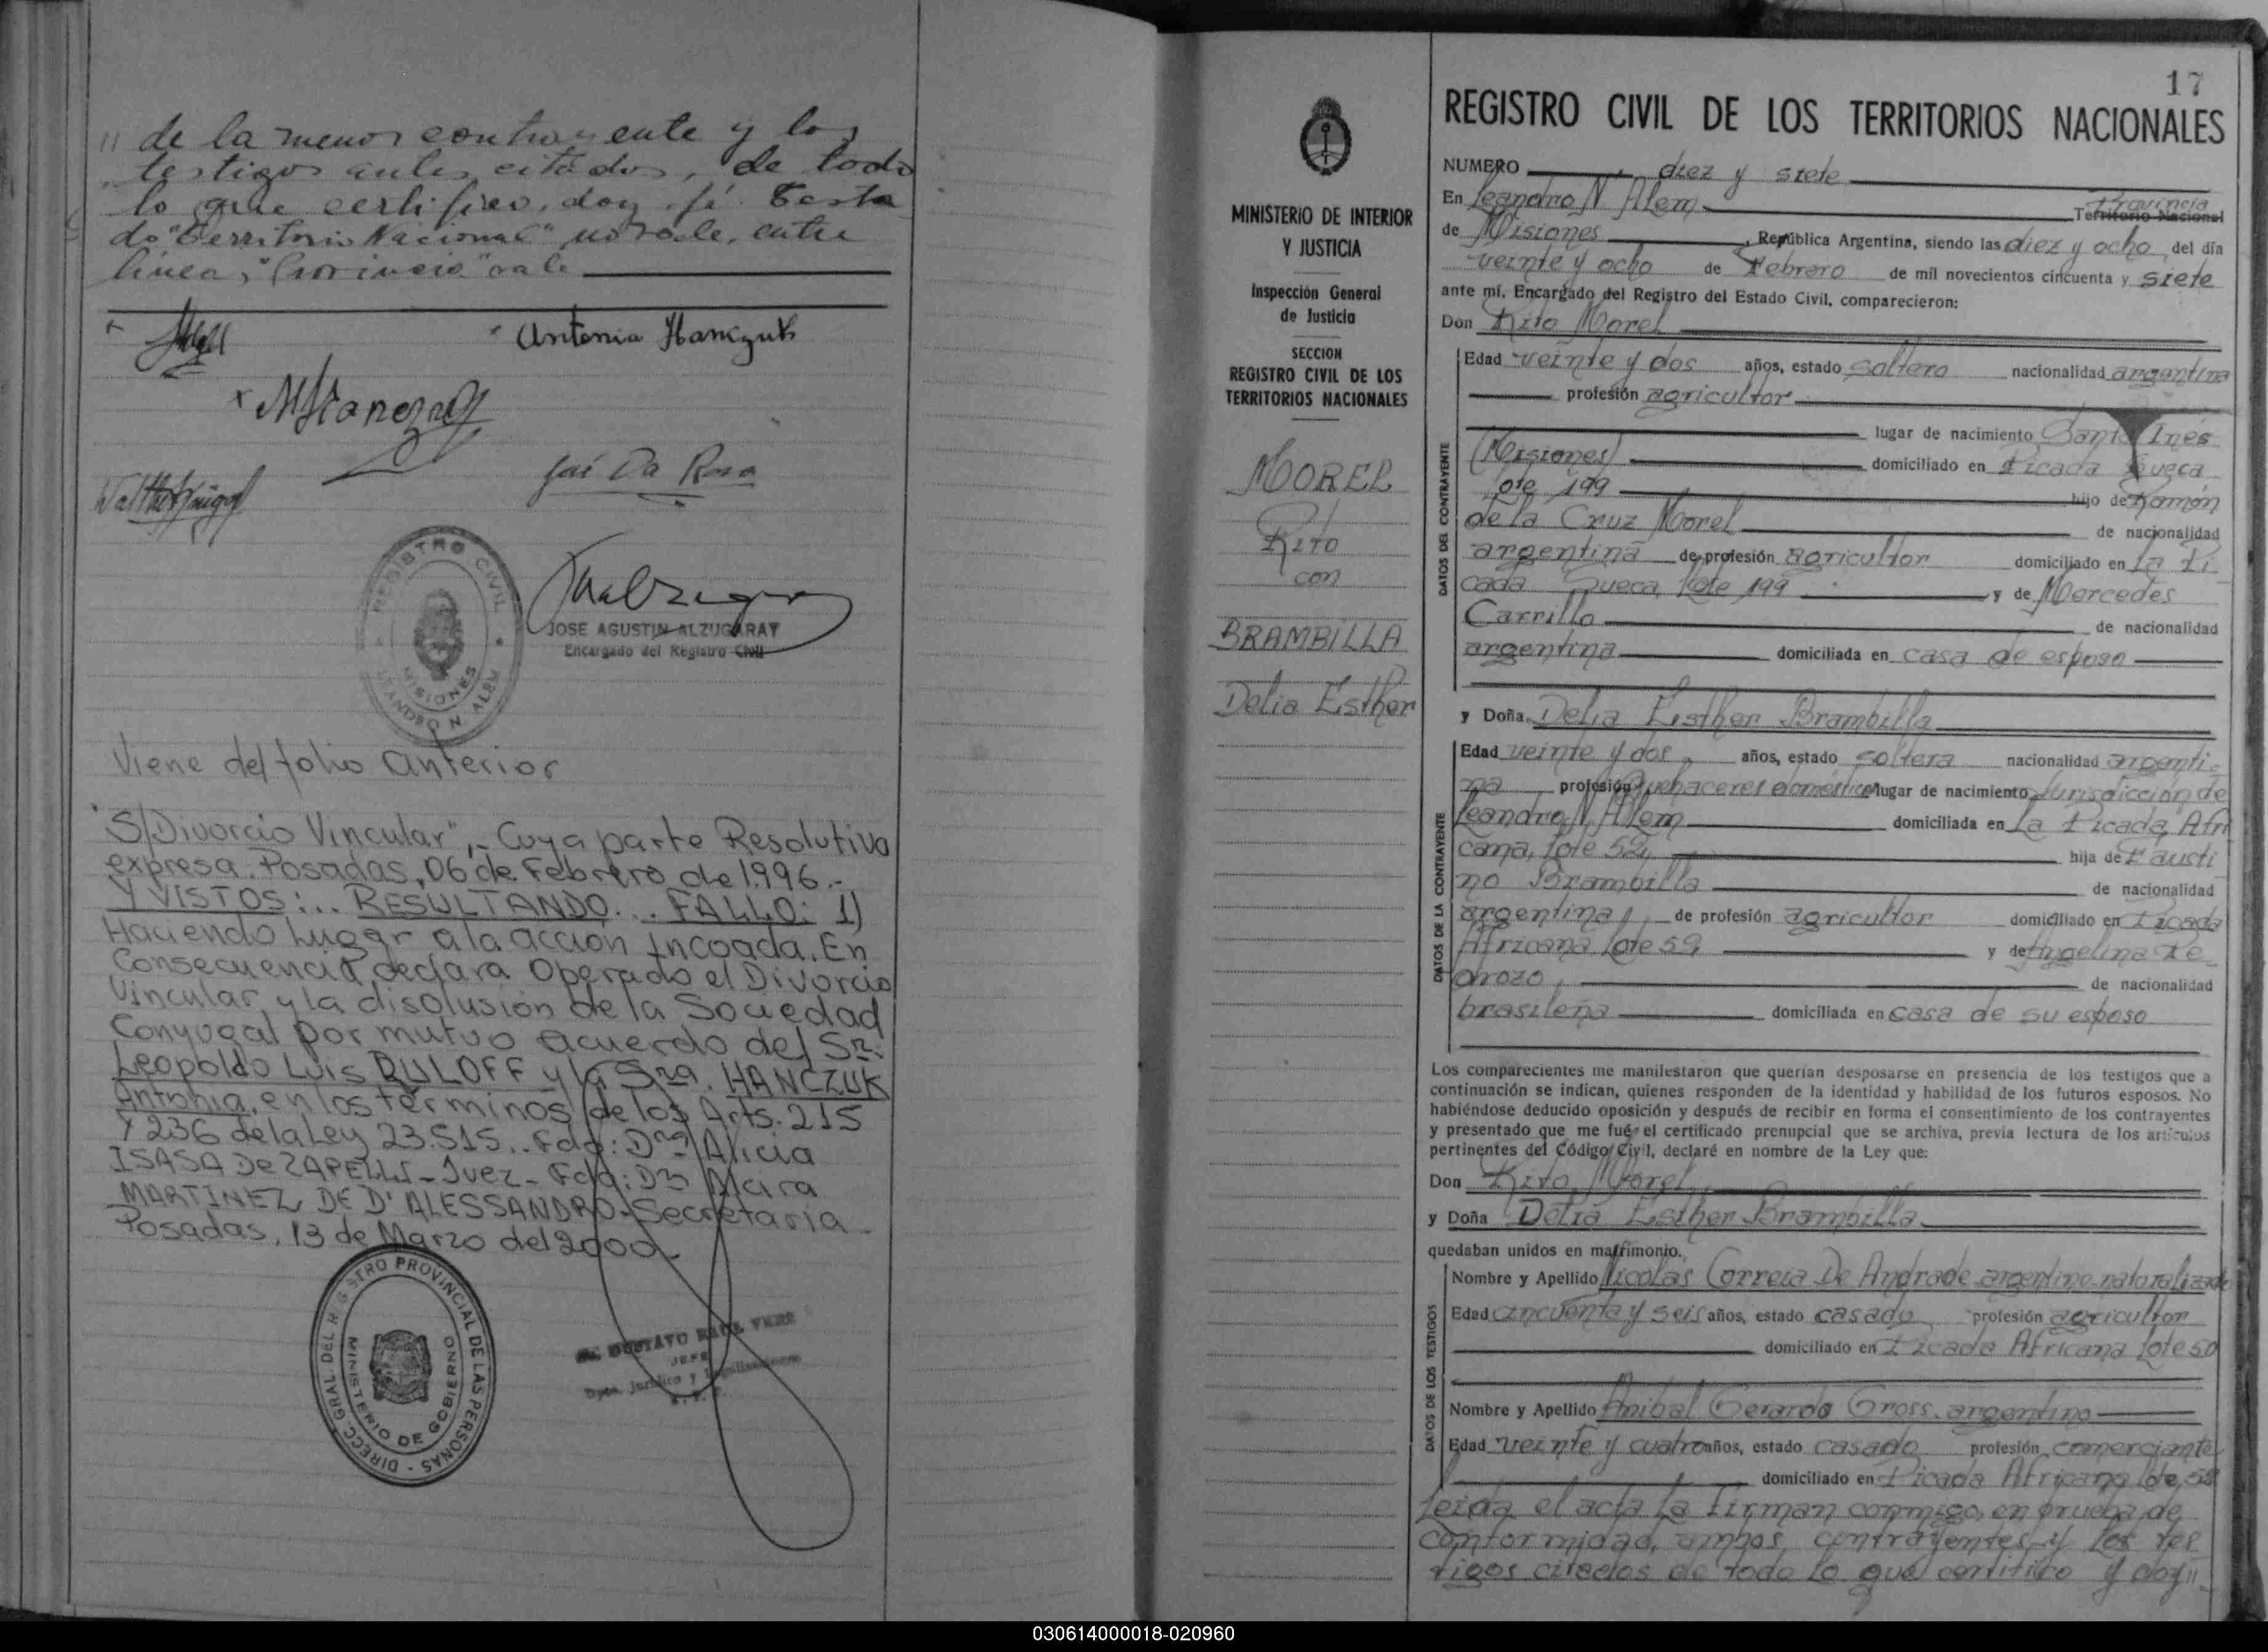 " de la menor contrayente y los
testigos antes citados, de todo
lo que certifico, doy fé. Testa
do "Territorio Nacional" no vale, entre
línea, "Provincia" vale
Antonia Hanczuk
José Da Rosa
REGISTRO CIVIL
MISIONES
LEANDRO N. ALEM
JOSE AGUSTIN ALZUGARAY
Encargado del Registro Civil
Viene del folio Anterior
"S/Divorcio Vincular",- Cuya parte Resolutiva
expresa. Posadas, 06 de Febrero de 1.996.-
Y VISTOS:.. RESULTANDO... FALLO: 1)
Haciendo Lugar a la acción Incoada. En
Consecuencia declara Operado el Divorcio
Vincular y la disolusión de la Sociedad
Conyugal por mutuo acuerdo del Sr:
Leopoldo Luis RULOFF y la Sra. HANCZUK
Antonia, en los términos de los Arts. 215
Y 236 de la Ley 23.515.. Fdo: Dra Alicia
ISASA De ZAPELLI - Juez - Fdo: Dra Mara
MARTINEZ DE D'ALESSANDRO - Secretaria -
Posadas, 13 de Marzo del 2000 -
DIRECC. GRAL. DEL REGISTRO PROVINCIAL DE LAS PERSONAS -
MINISTERIO DE GOBIERNO
GUSTAVO RAUL
JEFE
Dpto. Jurídico y Legalizaciones
MINISTERIO DE INTERIOR
Y JUSTICIA
Inspección General
de Justicia
SECCION
REGISTRO CIVIL DE LOS
TERRITORIOS NACIONALES
MOREL
Rito
con
BRAMBILLA
Delia Esther
17
REGISTRO CIVIL DE LOS TERRITORIOS NACIONALES
NUMERO diez y siete
Provincia
En Leandro N Alem Territorio Nacional
de Misiones, República Argentina, siendo las diez y ocho, del día
veinte y ocho de Febrero de mil novecientos cincuenta y siete
ante mí, Encargado del Registro del Estado Civil, comparecieron:
Don Rito Morel
DATOS DEL CONTRAYENTE
Edad veinte y dos años, estado soltero nacionalidad argentina
profesión agricultor
lugar de nacimiento Santa Inés
(Misiones) domiciliado en Picada Sueca
lote 199 hijo de Ramón
de la Cruz Morel de nacionalidad
argentina de profesión agricultor domiciliado en la Pi
cada Sueca, lote 199 y de Mercedes
Carrillo de nacionalidad
argentina domiciliada en casa de esposo
y Doña Delia Esther Brambilla
DATOS DE LA CONTRAYENTE
Edad veinte y dos, años, estado soltera nacionalidad argenti-
na profesión quehaceres domésticos lugar de nacimiento Jurisdicción de
Leandro N. Alem domiciliada en La Picada Afri
cana, lote 52, hija de Fausti
no Brambilla de nacionalidad
argentina, de profesión agricultor domiciliado en Picada
Africana lote 52, y de Angelina Pe
drozo, de nacionalidad
brasileña domiciliada en casa de su esposo
Los comparecientes me manifestaron que querían desposarse en presencia de los testigos que a
continuación se indican, quienes responden de la identidad y habilidad de los futuros esposos. No
habiéndose deducido oposición y después de recibir en forma el consentimiento de los contrayentes
y presentado que me fué el certificado prenupcial que se archiva, previa lectura de los artículos
pertinentes del Código Civil, declaré en nombre de la Ley que:
Don Rito Morel
y Doña Delia Esther Brambilla
quedaban unidos en matrimonio.
DATOS DE LOS TESTIGOS
Nombre y Apellido Nicolás Correia De Andrade argentino naturalizado
Edad cincuenta y seis años, estado casado profesión agricultor
domiciliado en Picada Africana lote 50
Nombre y Apellido Anibal Gerardo Gross, argentino
Edad veinte y cuatro años, estado casado profesión comerciante
domiciliado en Picada Africana lote 52
Leída el acta la firman conmigo, en prueba de
conformidad, ambos contrayentes y los tes
tigos citados de todo lo que certifico y doy "
030614000018-020960